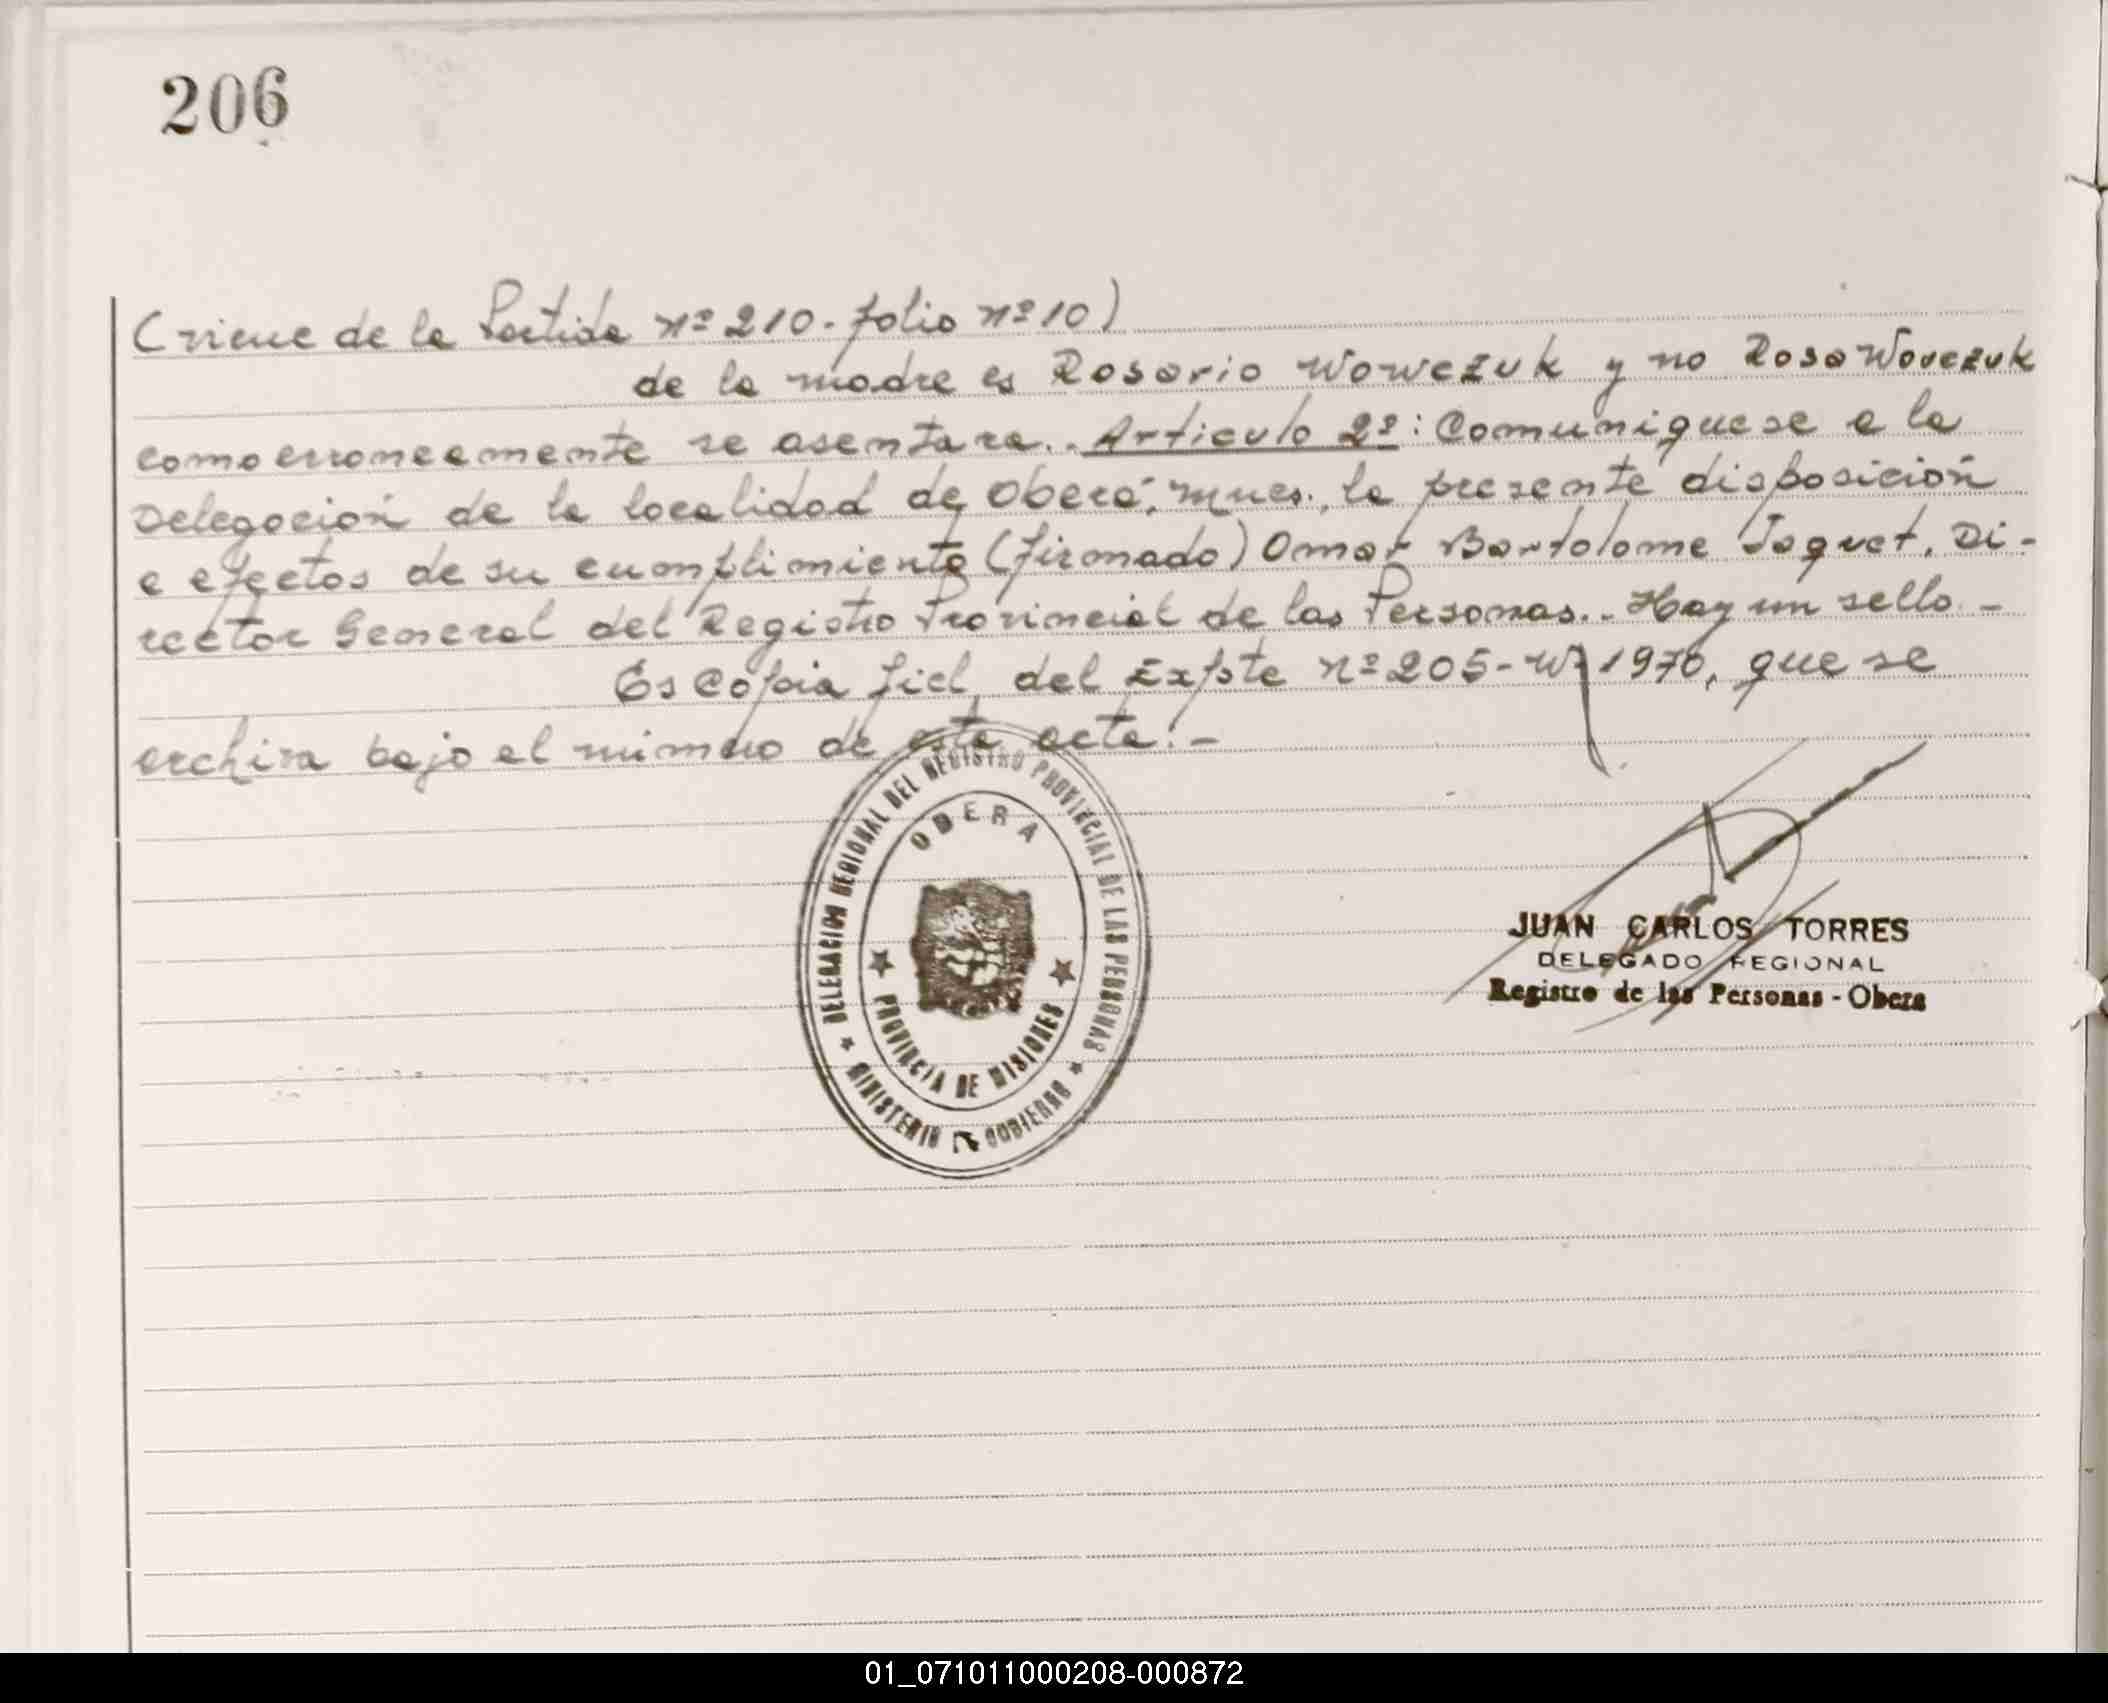 206
(viene de la Partida Nº 210. folio Nº 10)
de la madre es Rosario Wowczuk y no Rosa Wovczuk
como erroneamente se asentara.. Articulo 2º: Comuniquese a la
Delegacion de la localidad de Oberá, Mnes., la presente disposición
a efectos de su cumplimiento (firmado) Omar Bartolome Jaquet. Di-
rector General del Registro Provincial de las Personas.. Hay un sello.-
Es Copia fiel del Expte Nº 205-W-1970, que se
archiva bajo el número de esta acta.-
DELEGACION REGIONAL DEL REGISTRO PROVINCIAL DE LAS PERSONAS
OBERA
PROVINCIA DE MISIONES
MINISTERIO DE GOBIERNO
JUAN CARLOS TORRES
DELEGADO REGIONAL
Registro de las Personas - Obera
01_071011000208-000872